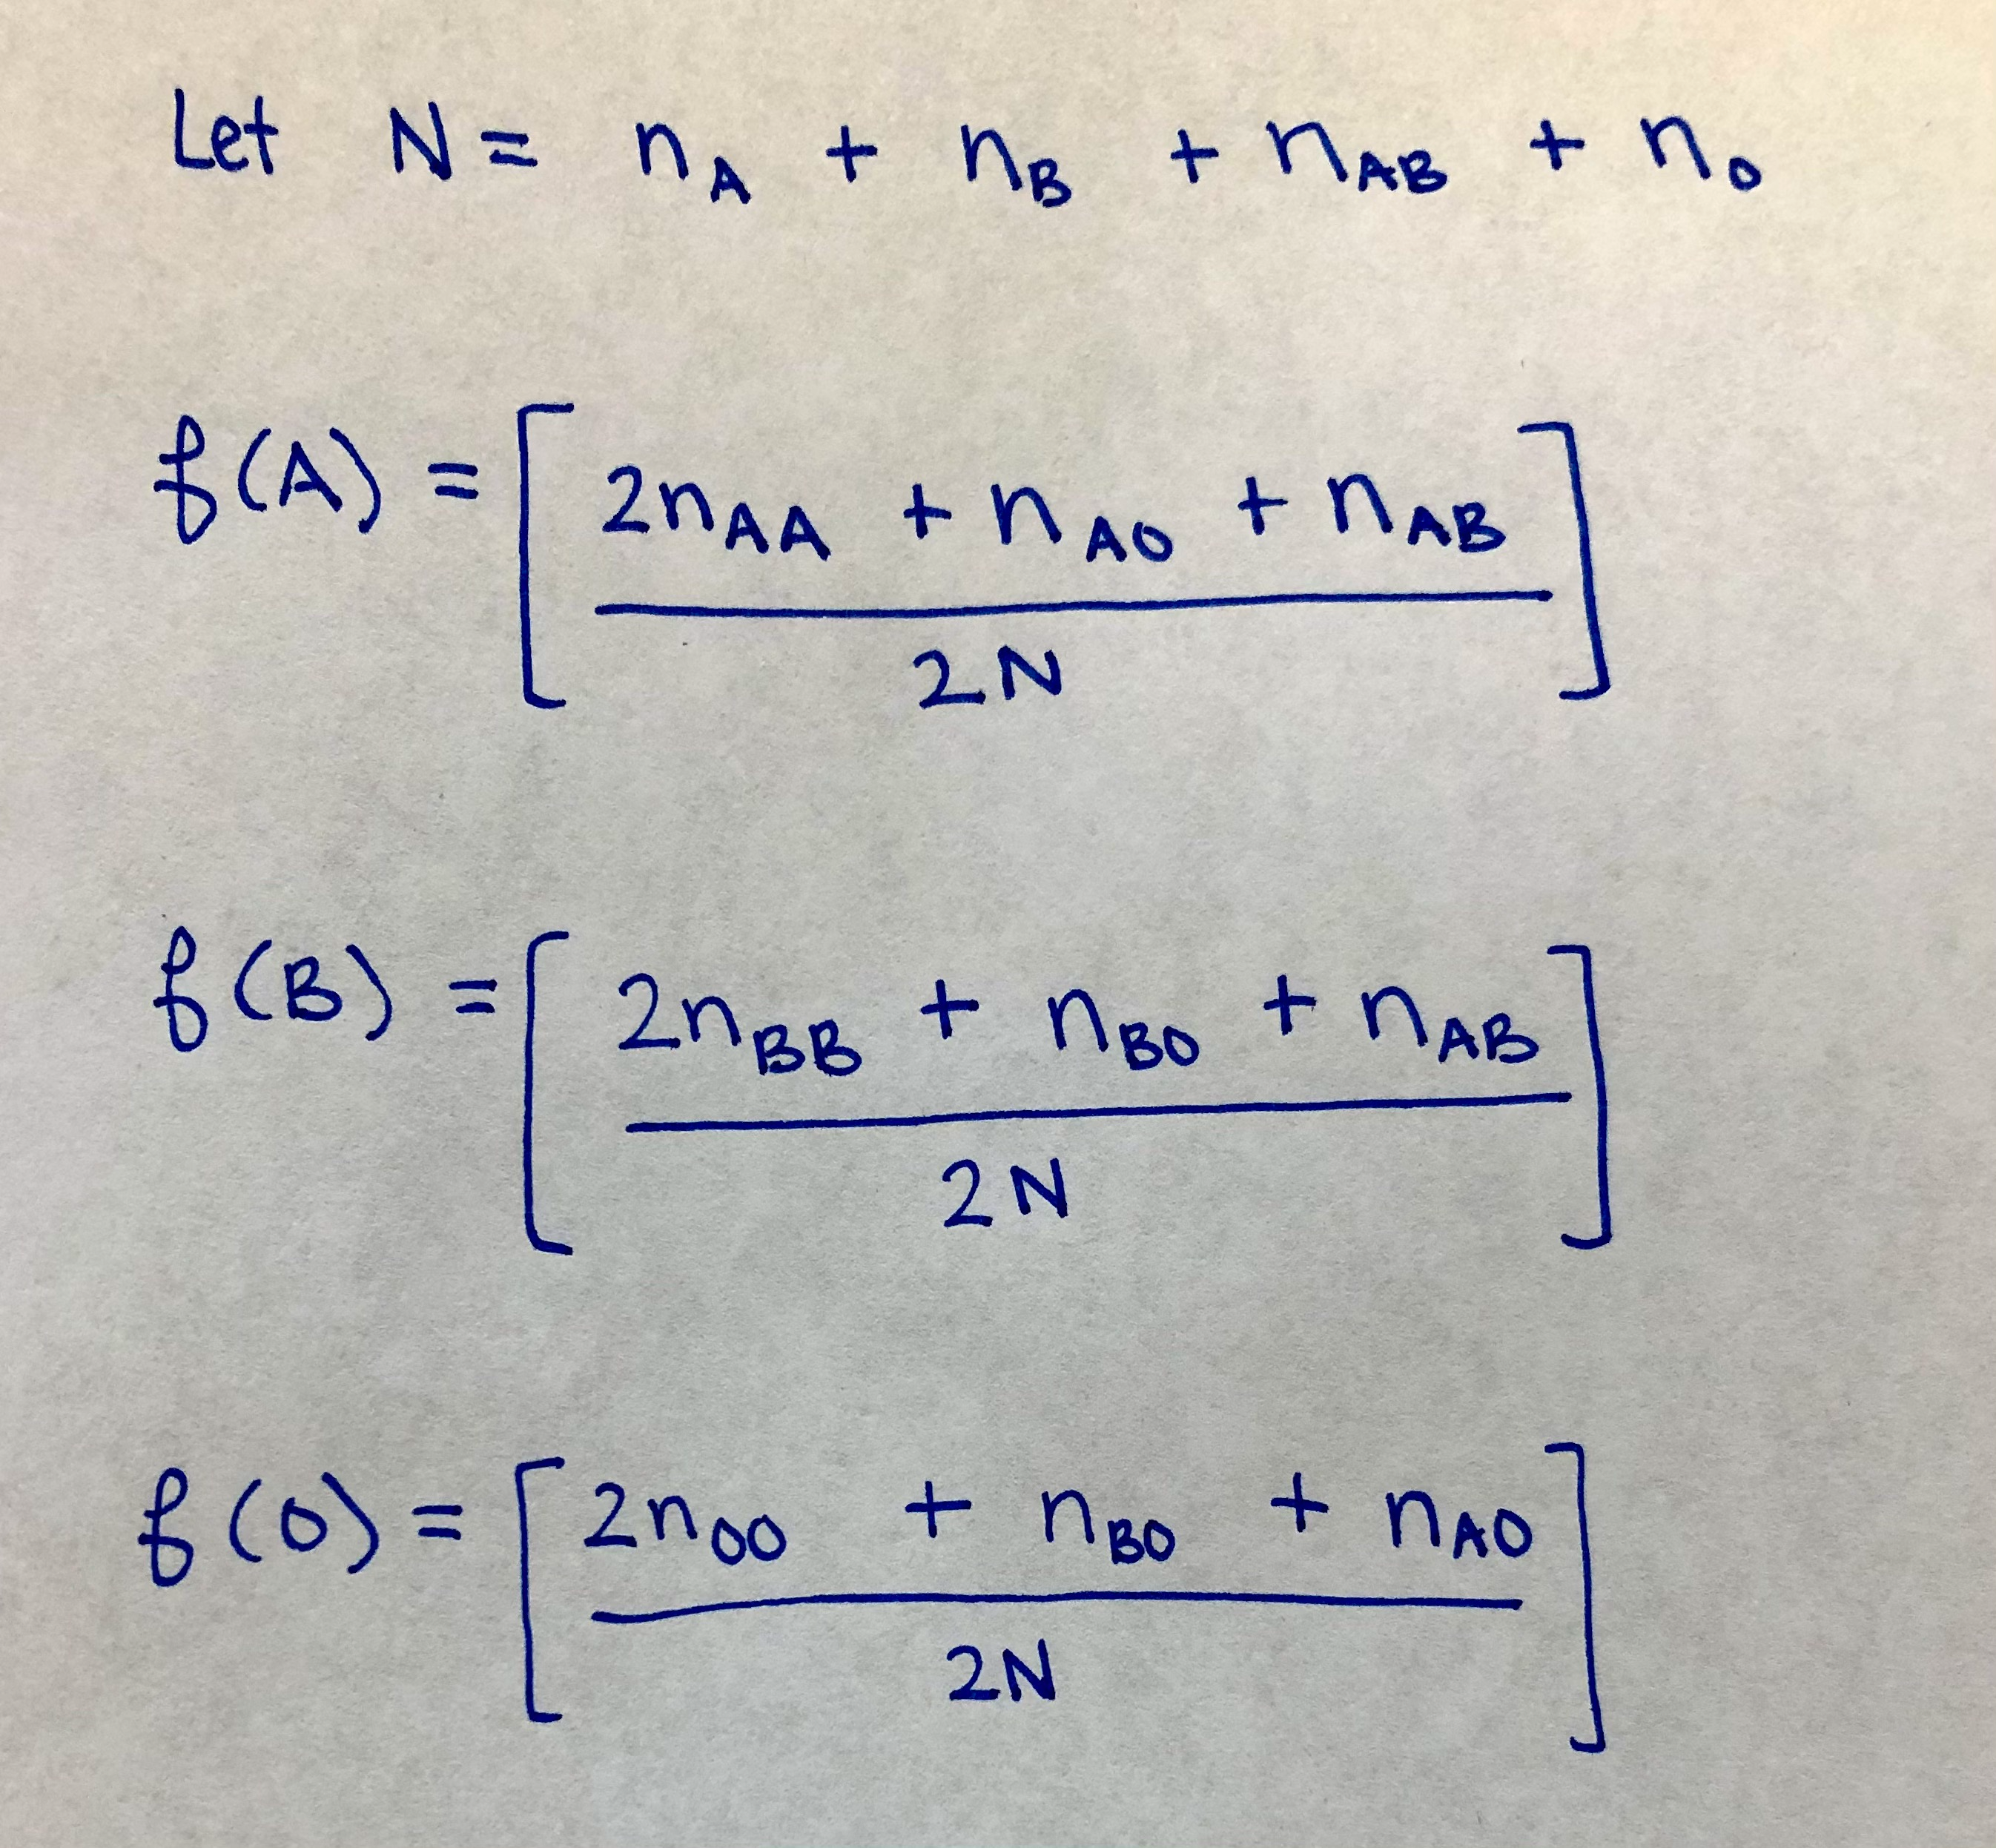 Let N = n_A + n_B + n_AB + n_O
f(A) = [ (2n_AA + n_AO + n_AB) / 2N ]
f(B) = [ (2n_BB + n_BO + n_AB) / 2N ]
f(O) = [ (2n_OO + n_BO + n_AO) / 2N ]